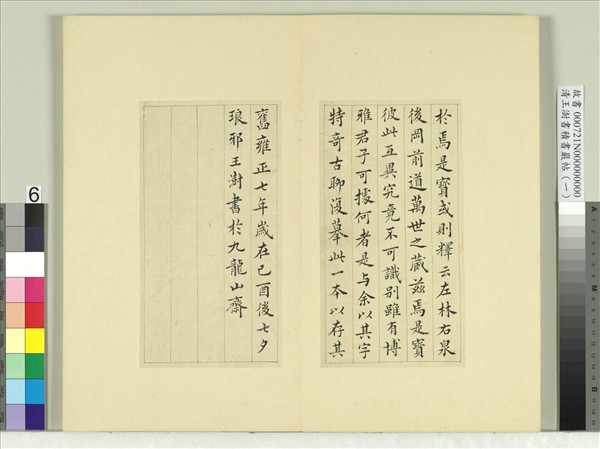 於焉是寶或則釋云左林右泉
後岡前道萬世之藏茲焉是寶
彼此互異究竟不可識別雖有博
雅君子可據何者是与余以其字
特奇古聊復摹此一本以存其
舊雍正七年歲在己酉後七夕
琅邪王澍書於九龍山齋
故書 000721N000000000
清王澍書積書巖帖（一）
6